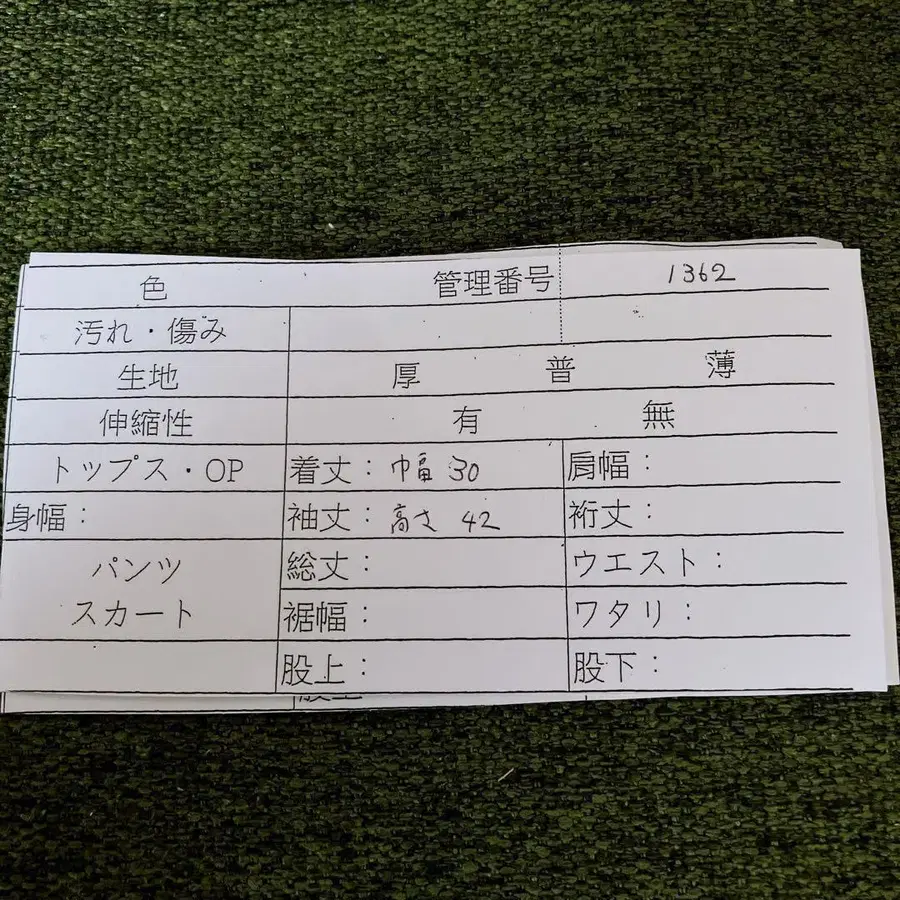 色 管理番号 1362
汚れ・傷み
生地 厚 普 薄
伸縮性 有 無
トップス・OP 着丈: 巾幅 30 肩幅:
身幅: 袖丈: 高さ 42 裄丈:
パンツ 総丈: ウエスト:
スカート 裾幅: ワタリ:
股上: 股下: